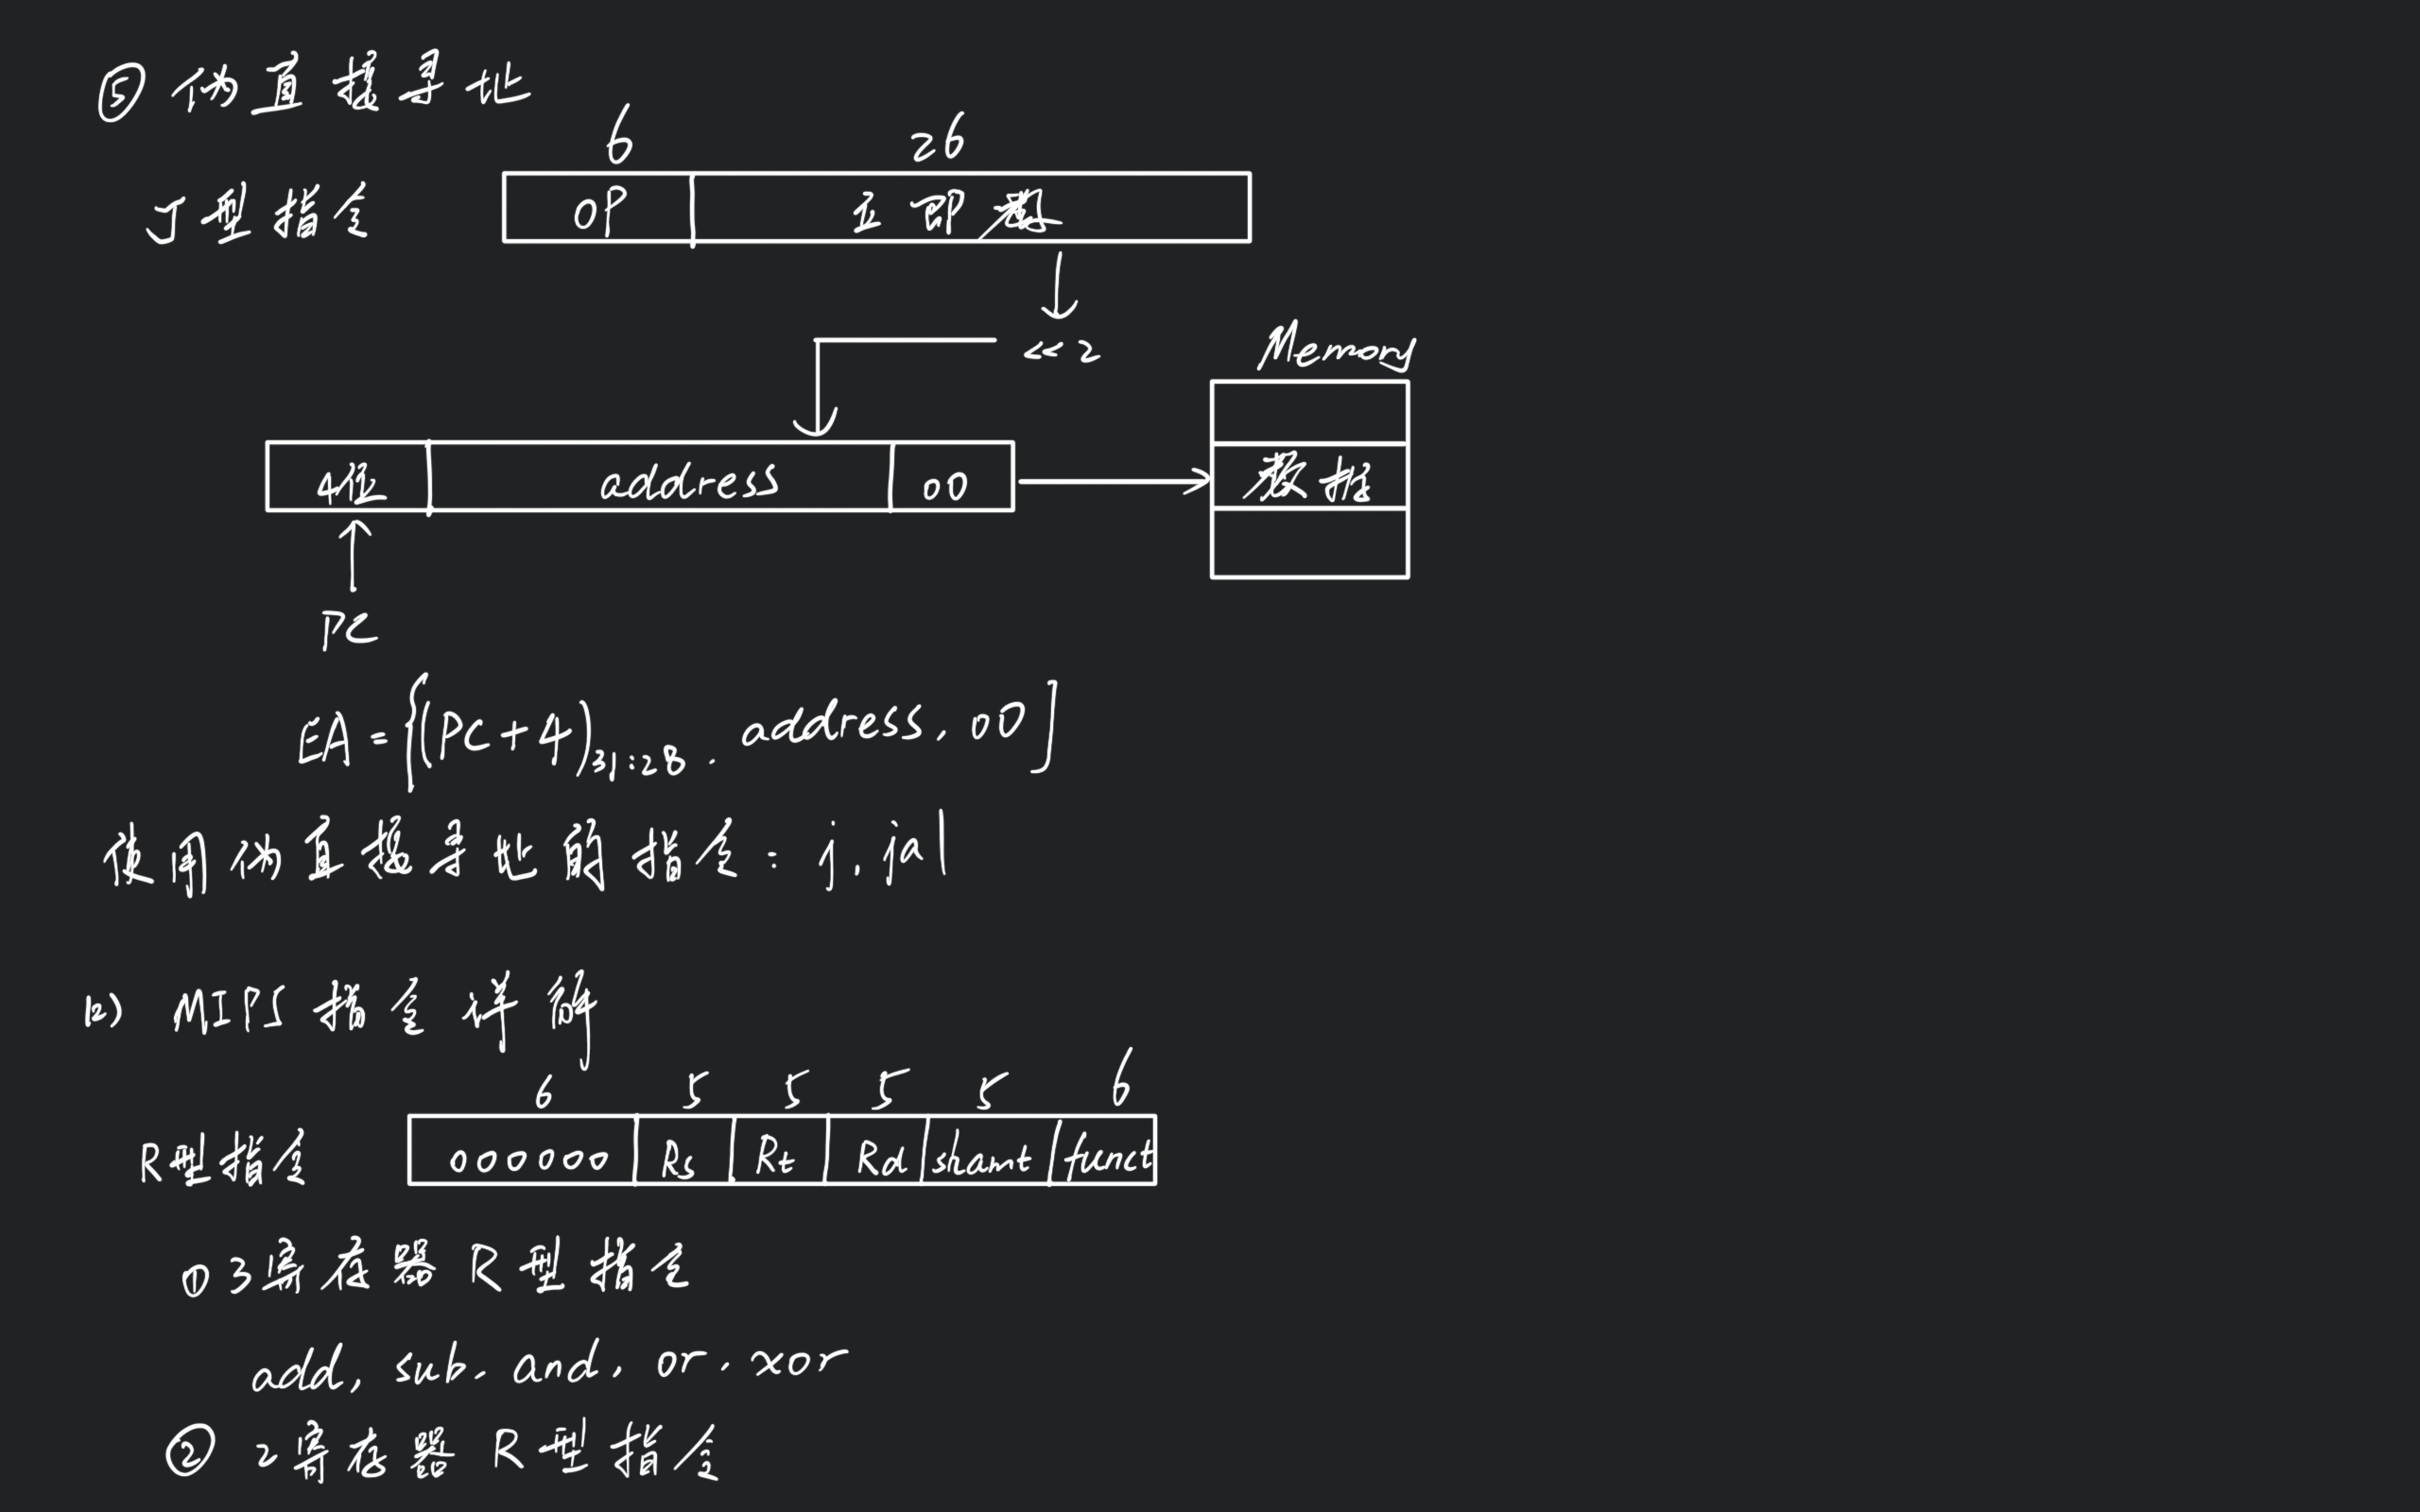 ⑤ 伪直接寻址
6 26
J型指令 OP 立即数
<<2
Memory
4位 address 00 数据
PC
EA={(PC+4)31:28. address, 00]
使用伪直接寻址的指令: j, jal
12) MIPS 指令详解
6 5 5 5 5 6
R型指令 000000 Rs Rt Rd shamt funct
① 3寄存器 R型指令
add, sub. and, or. xor
② 2寄存器 R型指令